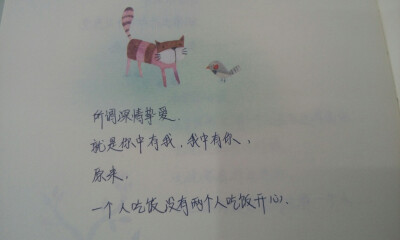 所谓深情挚爱.
就是你中有我,我中有你,
原来,
一个人吃饭没有两个人吃饭开心.